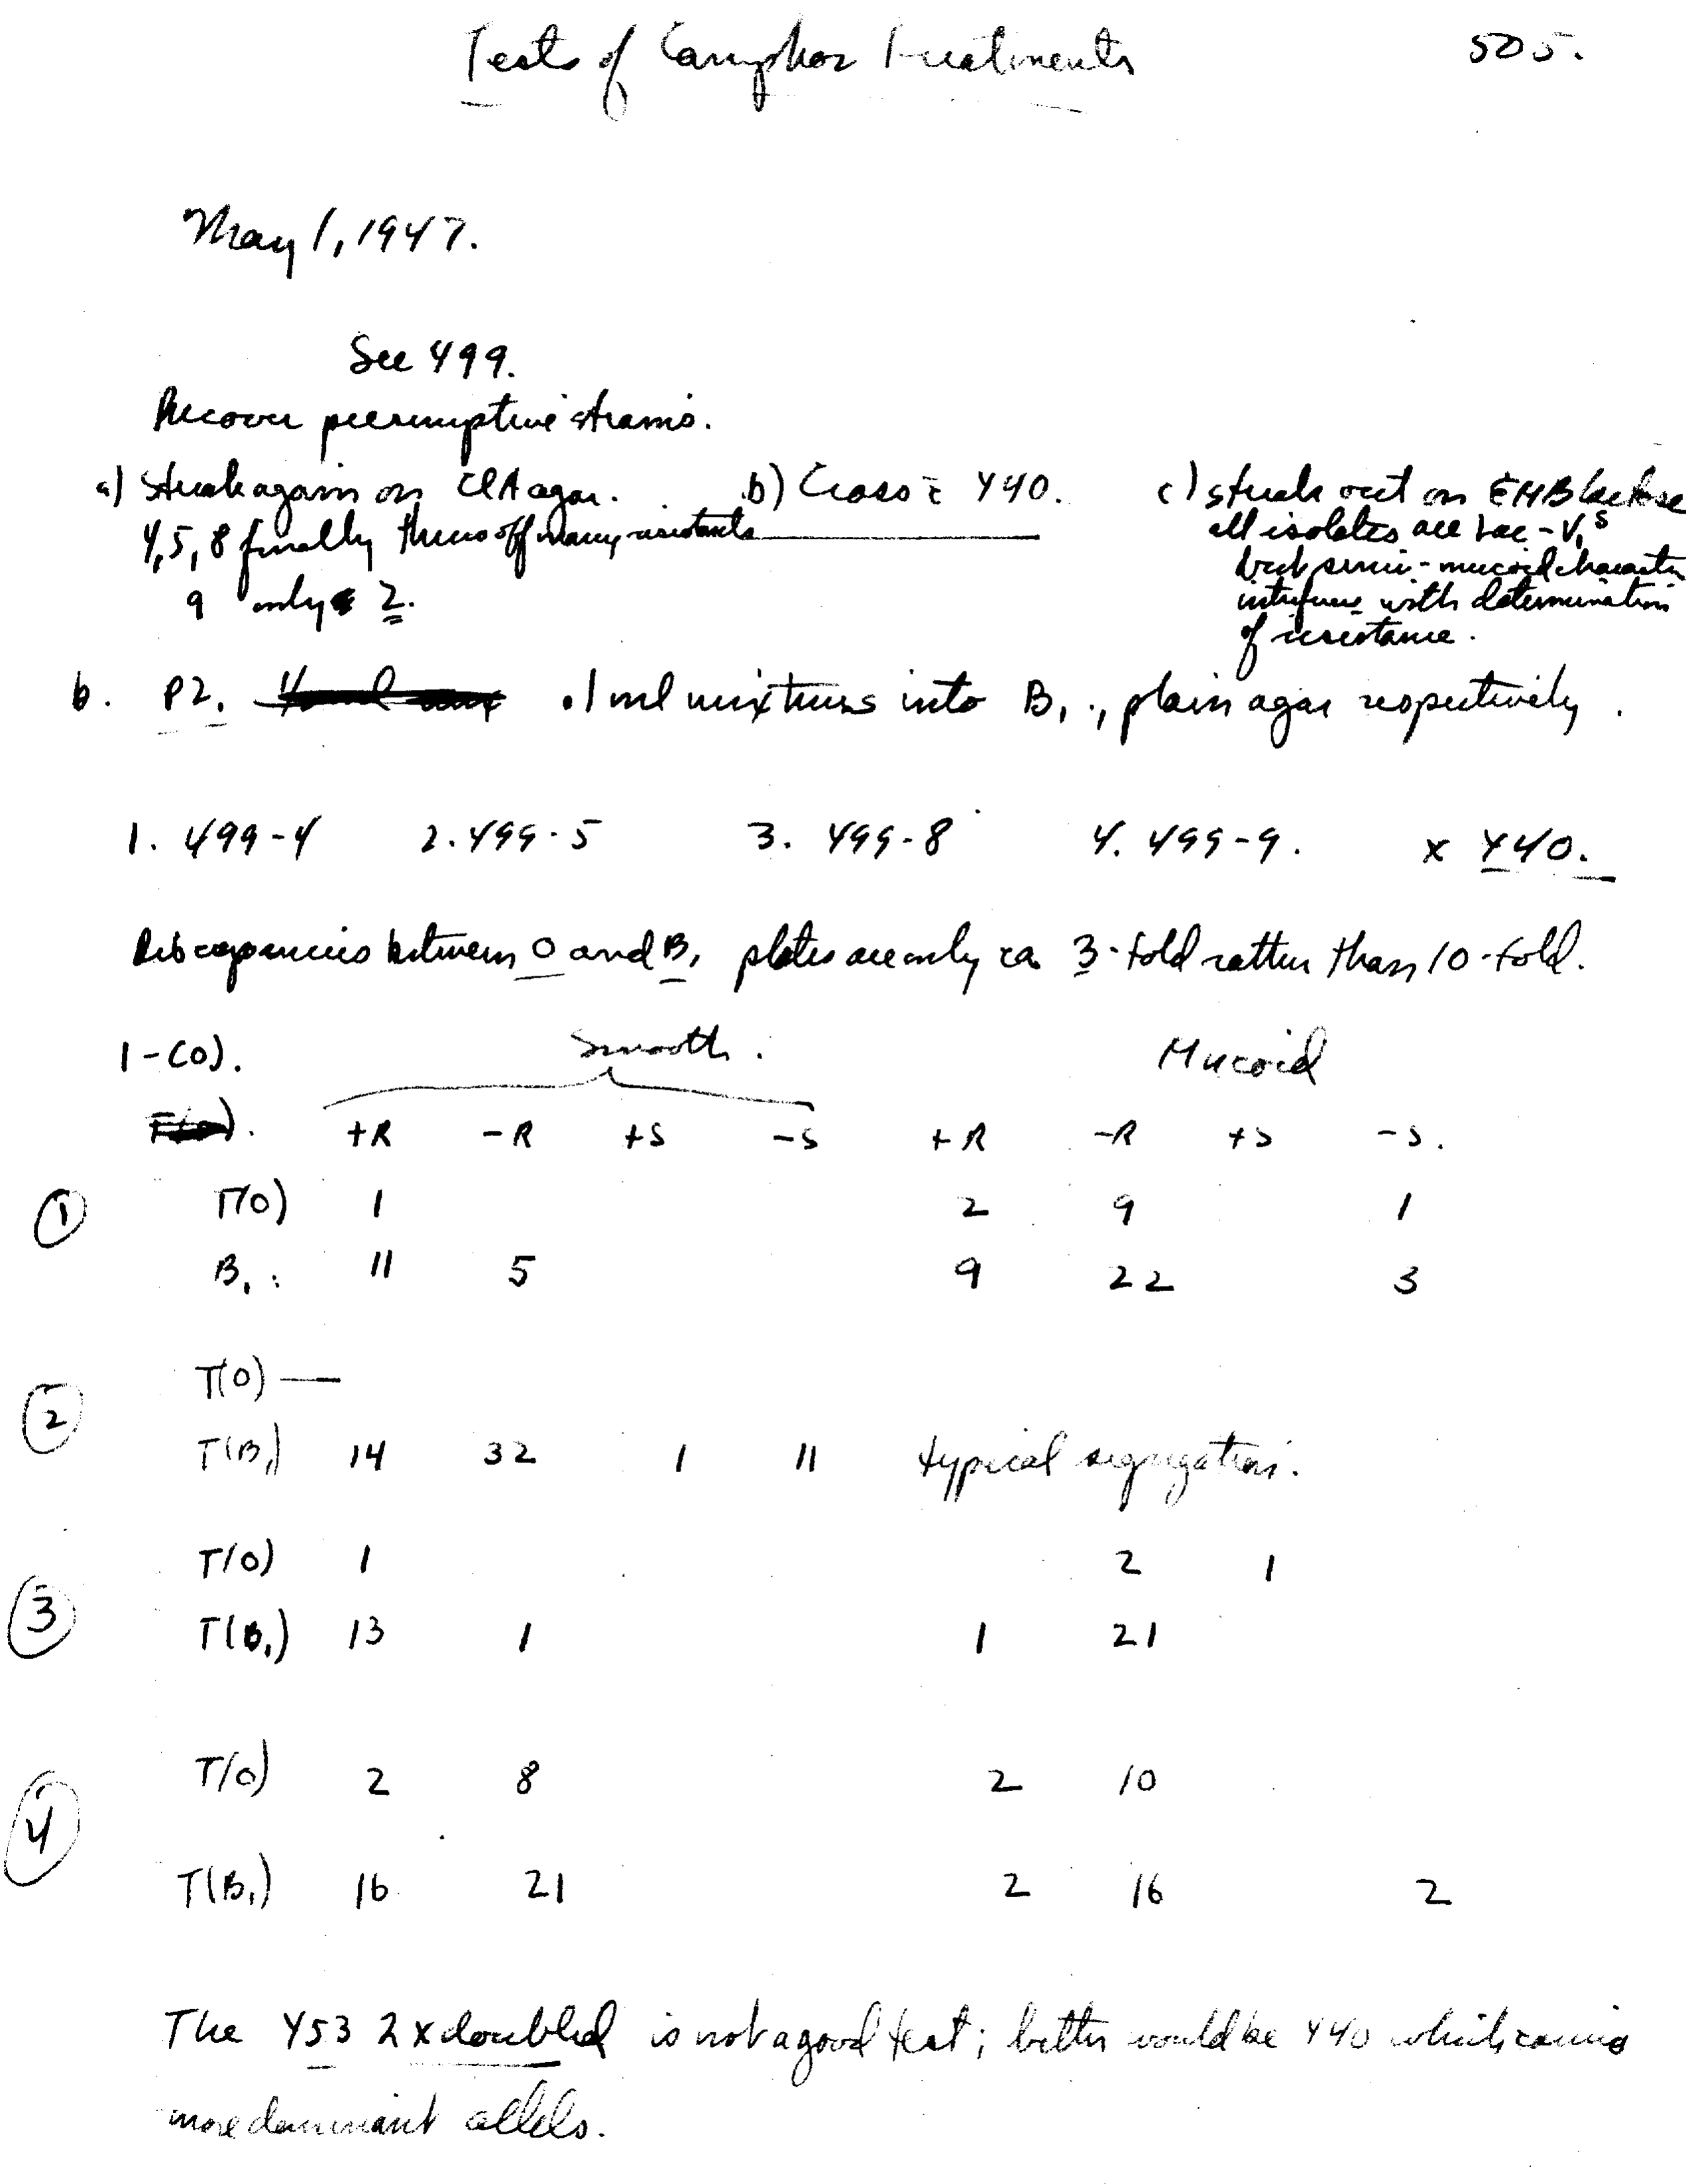 Tests of Camphor Treatments 505.
May 1, 1947.
See 499.
Recover presumptive strains.
a) Streak again on ClA agar.
4, 5, 8 finally throw off many resistants
9 only 2.
b) Cross c̄ Y40.
c) streak out on EMB lactose
all isolates are Lac - V1s
but semi-mucoid character
interferes with determination
of resistance.
b. P2. .1 ml mixtures into B1, plain agar respectively.
1. 499-4 2. 499-5 3. 499-8 4. 499-9. x Y40.
Discrepancies between O and B1 plates are only ca 3-fold rather than 10-fold.
1-(0). Smooth. Mucoid
+R -R +S -S +R -R +S -S.
① T(0) 1 2 9 1
B1: 11 5 9 22 3
② T(0) —
T(B1) 14 32 1 11 typical segregation.
③ T(0) 1 2 1
T(B1) 13 1 1 21
④ T(0) 2 8 2 10
T(B1) 16 21 2 16 2
The Y53 2x doubled is not a good test; better would be Y40 which carries
more dominant allels.